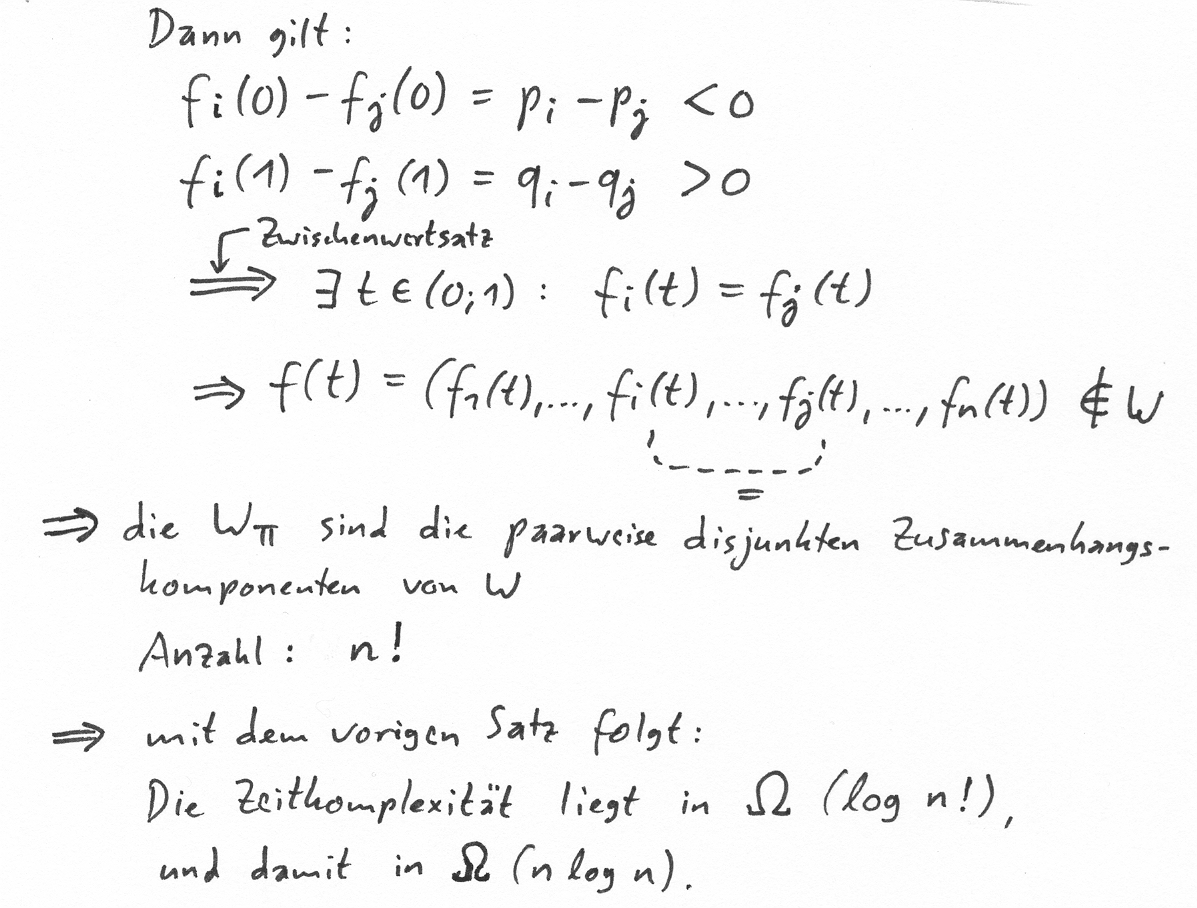 Dann gilt:
fi(0) - fj(0) = pi - pj < 0
fi(1) - fj(1) = qi - qj > 0
Zwischenwertsatz
⟹ ∃ t ∈ (0;1) : fi(t) = fj(t)
⇒ f(t) = (f1(t),..., fi(t),..., fj(t),..., fn(t)) ∉ W
=
⇒ die Wπ sind die paarweise disjunkten Zusammenhangs-
komponenten von W
Anzahl: n!
⇒ mit dem vorigen Satz folgt:
Die Zeitkomplexität liegt in Ω (log n!),
und damit in Ω (n log n).